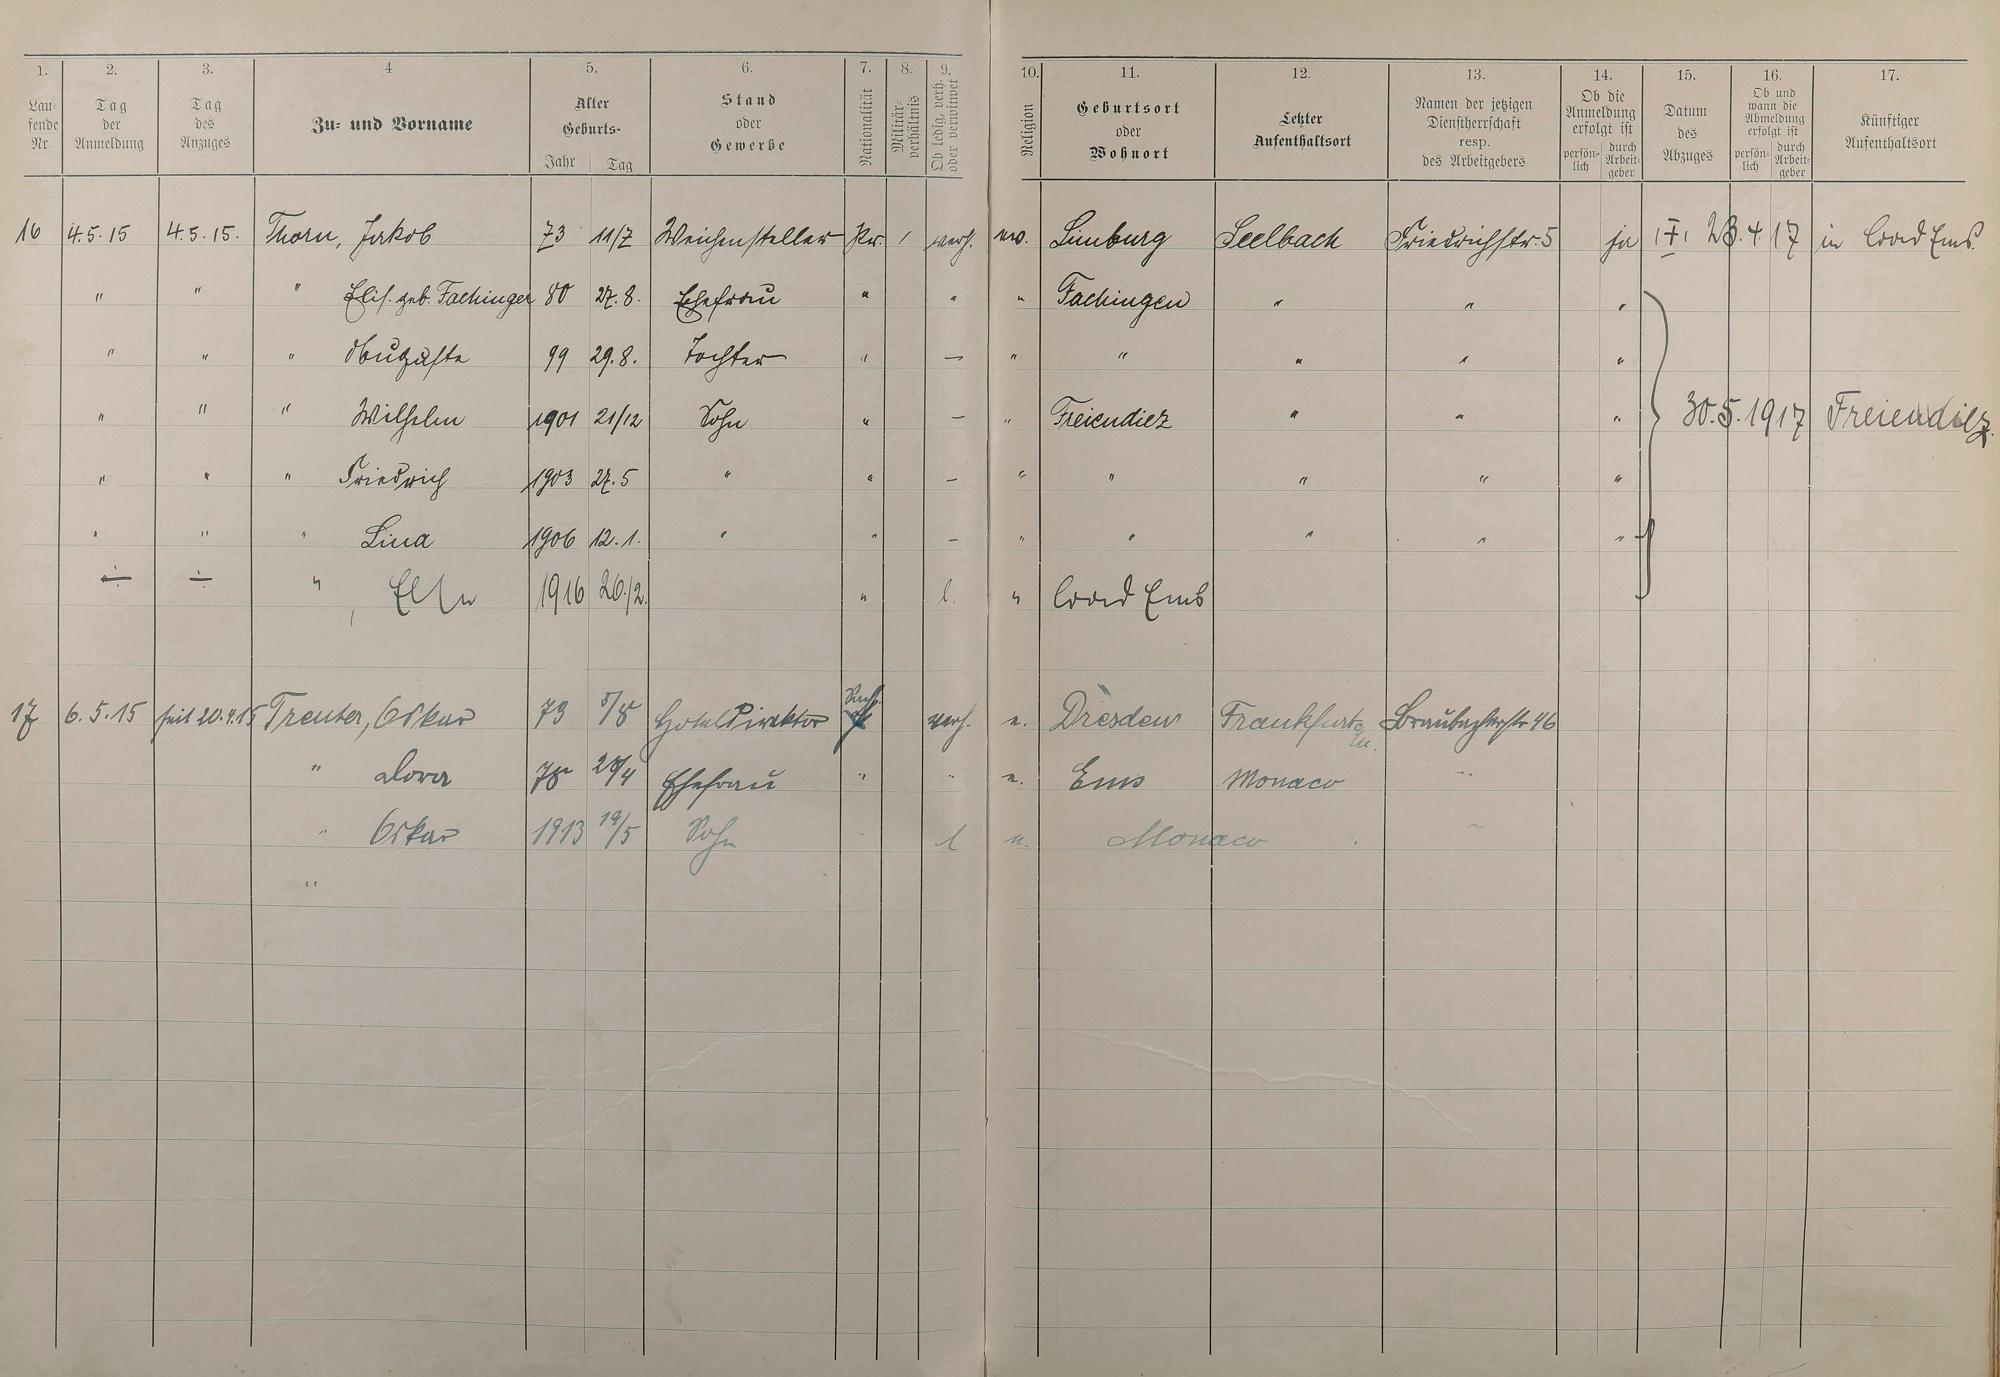 1. 2. 3. 4. 5. 6. 7. 8. 9. 10. 11. 12. 13. 14. 15. 16. 17.
Lau-
fende
Nr.
Tag
der
Anmeldung
Tag
des
Anzuges
Zu- und Vorname
Alter
Geburts-
Jahr Tag
Stand
oder
Gewerbe
Nationalität
Militär-
verhältnis
Ob ledig, verh.
oder verwitwet
Religion
Geburtsort
oder
Wohnort
Letzter
Aufenthaltsort
Namen der jetzigen
Dienstherrschaft
resp.
des Arbeitgebers
Ob die
Anmeldung
erfolgt ist
persön-
lich
durch
Arbeit-
geber
Datum
des
Abzuges
Ob und
wann die
Abmeldung
erfolgt ist
persön-
lich
durch
Arbeit-
geber
Künftiger
Aufenthaltsort
16 4.5.15 4.5.15. Thorn, Jakob 73 11/7 Weichensteller Pr. / verh. ev. Limburg Seelbach Friedrichstr. 5 ja 23.4.17 in Bad Ems.
" " " Elis. geb. Fachinger 80 27.8. Ehefrau " " " Fachingen " " "
" " " Auguste 99 29.8. Tochter " — " " " " "
" " " Wilhelm 1901 21/12 Sohn " — " Freiendiez " " " 30.5.1917 Freiendiez.
" " " Friedrich 1903 27.5 " " — " " " " "
" " " Lina 1906 12.1. " " — " " " " "
÷ ÷ " Else 1916 26./2. " l. " Bad Ems
17 6.5.15 seit 20.4.15 Treuter, Oskar 73 5/8 Hotel Direktor Sachs. verh. e. Dresden Frankfurt a/M. Braubacherstr 46
" Dora 78 28/4 Ehefrau " " e. Ems Monaco "
" Oskar 1913 19/5 Sohn l e. Monaco "
"